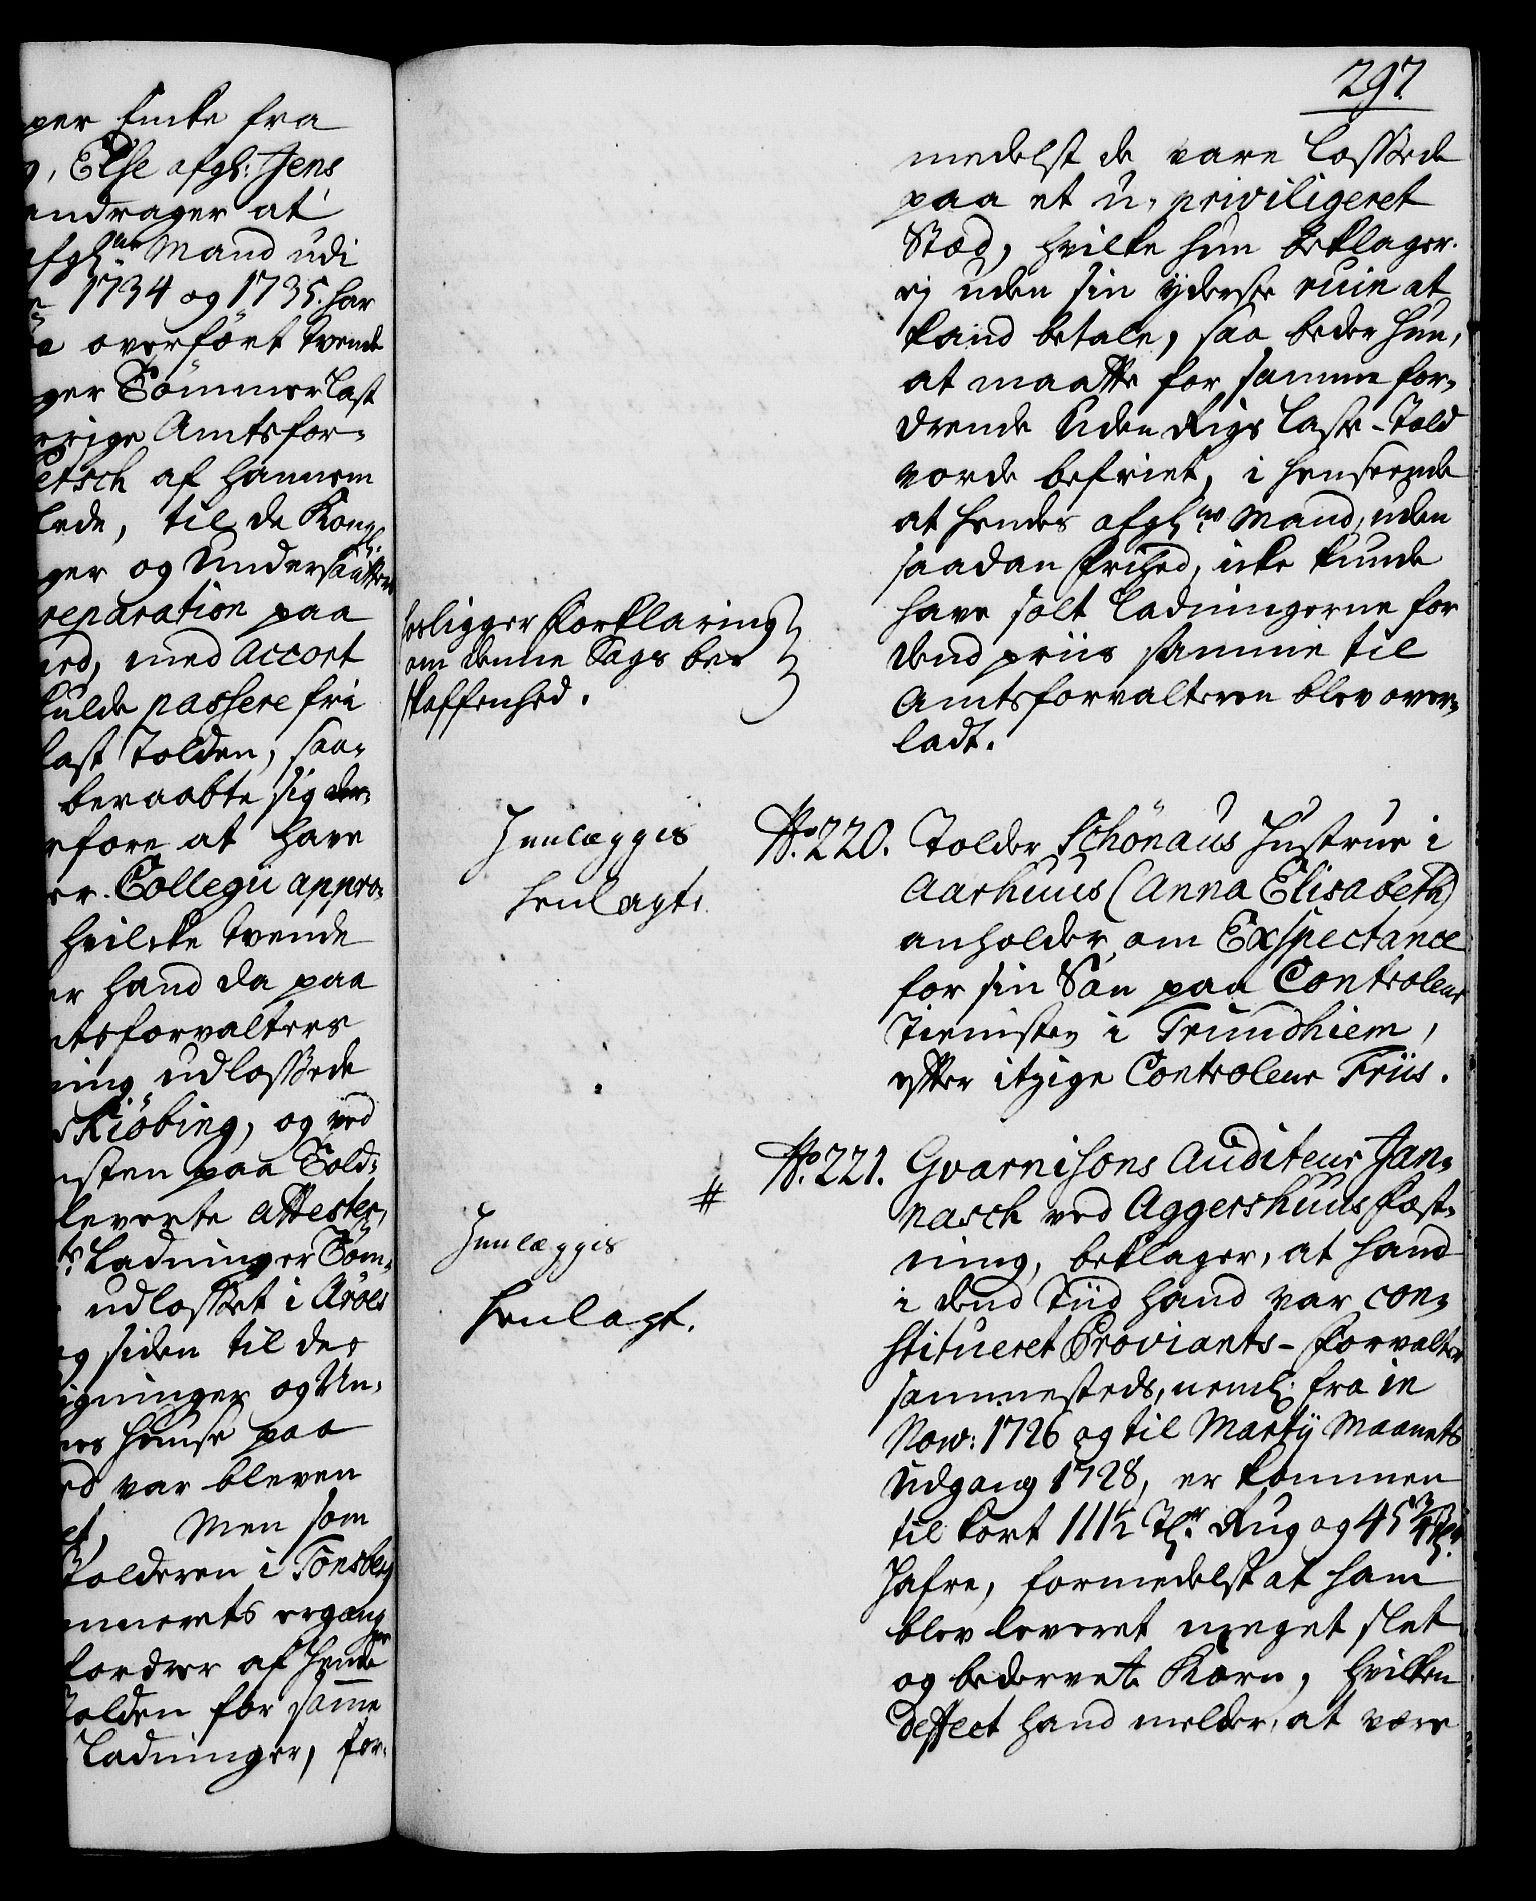 per Encke fra
Else afgl: Jens
andrager at
afgl. Mand udi
1734 og 1735. har
overfört tvende
ger Tömmerlast
Amtsfor-
etsch af hannem
lede, til de Kongl.
ger og Undersaatter
reparation paa
med Accort
kulde passere fri
last Tolden, saa-
beraabte sig der-
fore at have
er. Collegii appro-
hvilcke tvende
er hand da paa
mtsforvalters
ning udlossede
Kiöbing, og ved
sten paa Told-
leverte attester,
Ladninger Töm-
udlosset i Äröes
og siden til des
igninger og Un-
huuse paa
var bleven
et, Men som
Tolderen i Tönsberg
ergang
fordrer af hende
Tolden for samme
Ladninger, for-
297
medelst de vare lossede
paa et u-priviligeret
Stæd, hvilke hun beklager
ej uden sin yderste ruin at
kand betale, saa beder hun,
at maatte for samme for-
drende Uden Rigs Laste-Told
vorde befriet, i henseende
at hendes afgl. Mand, uden
saadan Frihed, icke kunde
have solt Ladningerne for
dend priis samme til
Amtsforvalteren blev over-
ladt.
ligger Forklaring
om denne Sags be-
skaffenhed.
Innlægges
henlagt.
No. 220. Tolder Schönaus Hustrue i
Aarhuus (Anna Elisabeth)
anholder om Exspectance
for sin Sön paa Controleur
Tienisten i Trundhiem,
efter itzige Controleur Friis.
#
Innlægges
henlagt.
No. 221. Gvarnisons Auditeur Jan-
nasch ved Aggershuus Fæst-
ning, beklager, at hand
i dend Tiid hand var con-
stitueret Proviants-Forvalter
sammesteds, neml. fra 1e
Nov: 1726 og til Martij Maanets
Udgang 1728, er kommen
til kort 111½ Tlr. Rug og 45¾ Tlr.
Hafre, formedelst at ham
blev leveret meget slet
og bedervet Korn, hvilken
Deffect hand melder, at være